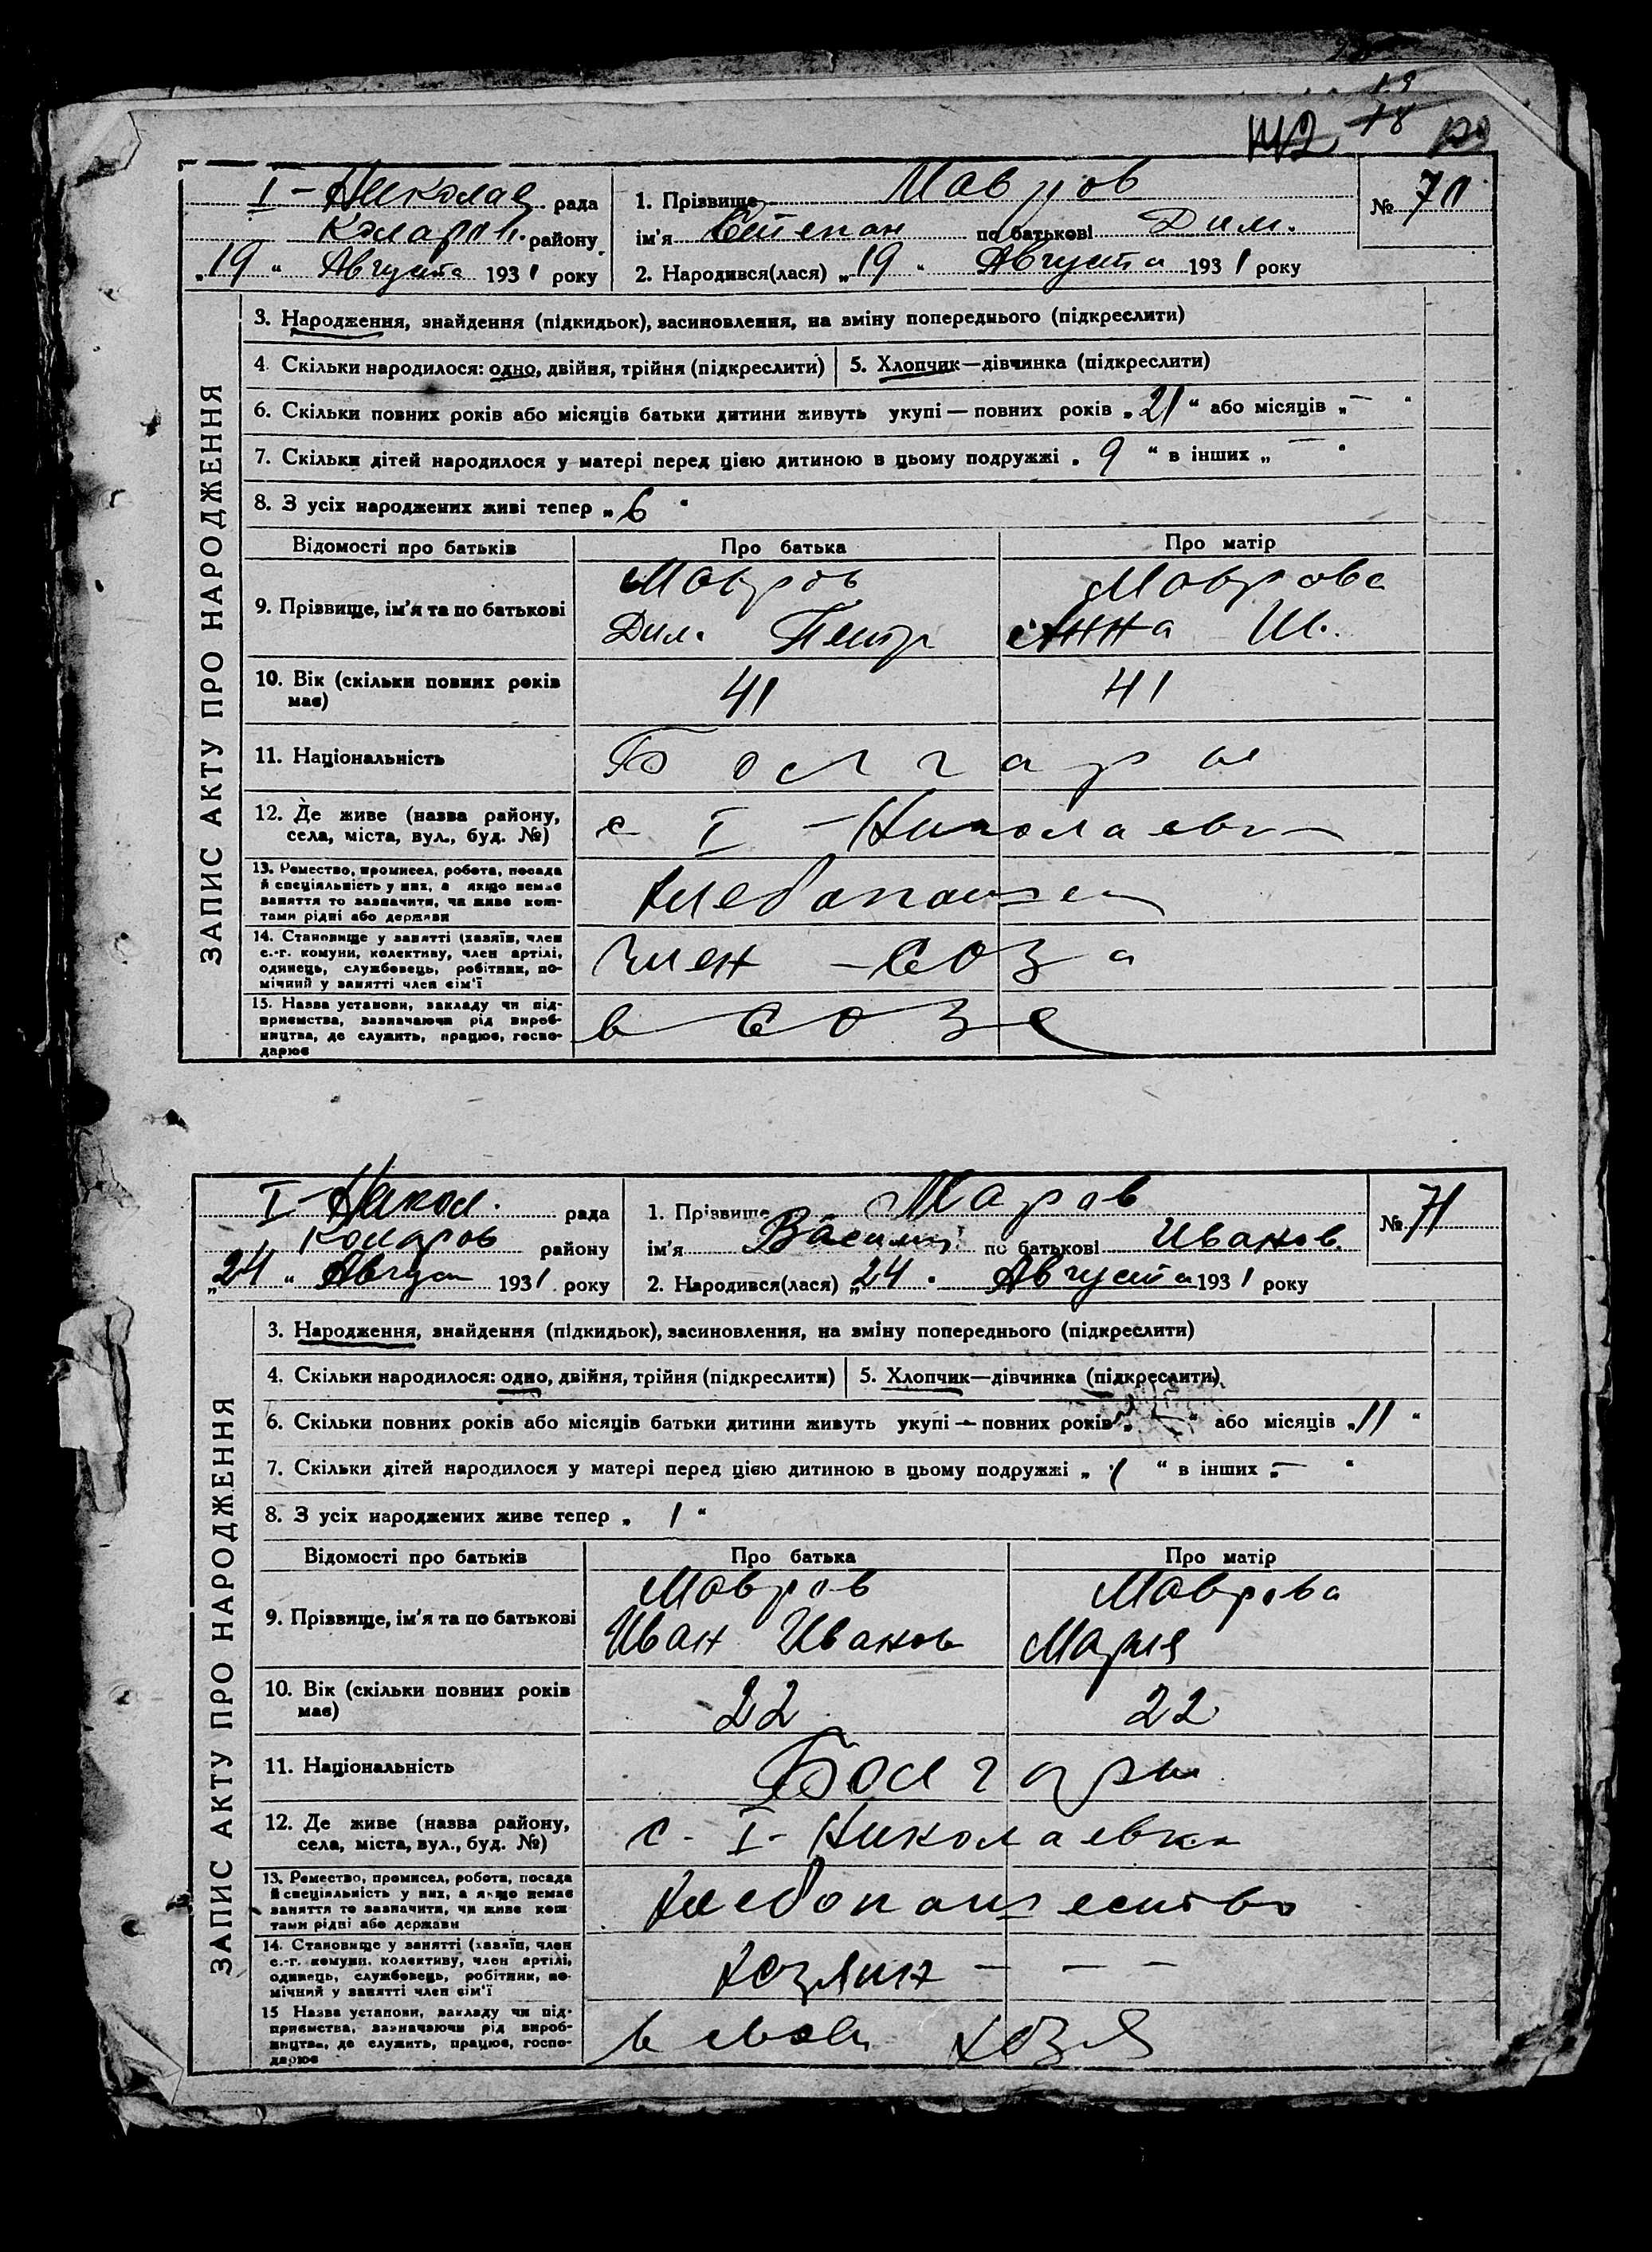 19
18
I-Николаев рада
Коларов. району
„19“ Августа 1931 року
1. Прізвище Мавров
ім'я Степан по батькові Дим.
2. Народився(лася) „19“ Августа 1931 року
№ 70
ЗАПИС АКТУ ПРО НАРОДЖЕННЯ
3. Народження, знайдення (підкидьок), засиновлення, на зміну попереднього (підкреслити)
4. Скільки народилося: одно, двійня, трійня (підкреслити) 5. Хлопчик—дівчинка (підкреслити)
6. Скільки повних років або місяців батьки дитини живуть укупі — повних років „21“ або місяців „—“
7. Скільки дітей народилося у матері перед цією дитиною в цьому подружжі „9“ в інших „—“
8. З усіх народжених живі тепер „6“
Відомості про батьків Про батька Про матір
9. Прізвище, ім'я та по батькові
Мавров Маврова
Дим. Петр Анна Ш.
10. Вік (скільки повних років має) 41 41
11. Національність Болгары
12. Де живе (назва району, села, міста, вул., буд. №) с I-Николаевк
13. Ремество, промисел, робота, посада
й спеціяльність у них, а якщо немає
заняття то зазначити, чи живе кош-
тами рідні або держави
Хлебопашец
14. Становище у занятті (хазяїн, член
с.-г. комуни, колективу, член артілі,
одинець, службовець, робітник, по-
мічний у занятті член сім'ї
Член - СОЗа
15. Назва установи, закладу чи під-
приємства, зазначаючи рід вироб-
ництва, де служить, працює, госпо-
дарює
в СОЗе
I-Никол. рада
Коларов району
„24“ Август 1931 року
1. Прізвище Маров
ім'я Василий по батькові Иванов.
2. Народився(лася) „24“ Августа 1931 року
№ 71
ЗАПИС АКТУ ПРО НАРОДЖЕННЯ
3. Народження, знайдення (підкидьок), засиновлення, на зміну попереднього (підкреслити)
4. Скільки народилося: одно, двійня, трійня (підкреслити) 5. Хлопчик—дівчинка (підкреслити)
6. Скільки повних років або місяців батьки дитини живуть укупі — повних років „—“ або місяців „11“
7. Скільки дітей народилося у матері перед цією дитиною в цьому подружжі „1“ в інших „—“
8. З усіх народжених живе тепер „1“
Відомості про батьків Про батька Про матір
9. Прізвище, ім'я та по батькові
Мавров Маврова
Иван Иванов Мария
10. Вік (скільки повних років має) 22 22
11. Національність Болгары
12. Де живе (назва району, села, міста, вул., буд. №) с. I-Николаевка
13. Ремество, промисел, робота, посада
й спеціяльність у них, а якщо немає
заняття то зазначити, чи живе кош
тами рідні або держави
Хлебопашество
14. Становище у занятті (хазяїн, член
с.-г. комуни. колективу, член артілі,
одинець, службовець, робітник, по-
мічний у занятті член сім'ї
Хозяин - - -
15 Назва установи, закладу чи під-
приємства, зазначаючи рід вироб-
ництва, де служить, працює, госпо-
дарює
в своем хозя